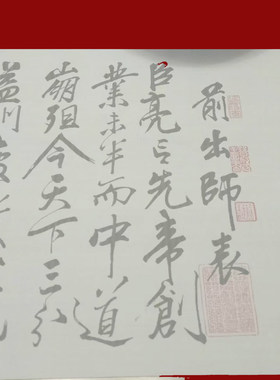 前出師表
臣亮言先帝創
業未半而中道
崩殂今天下三分
益州疲